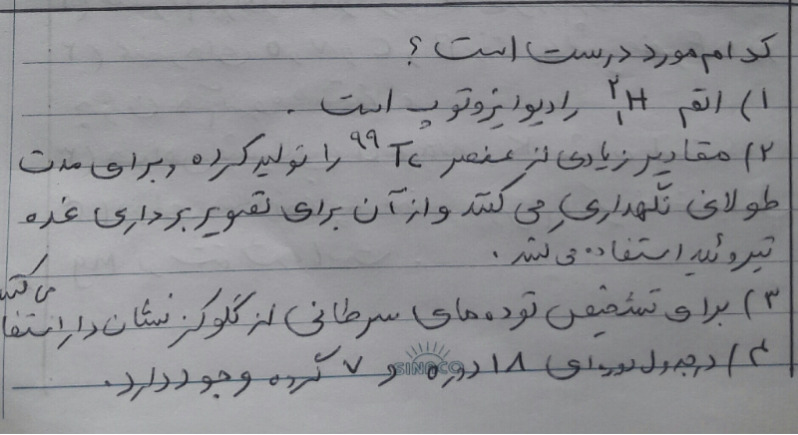 کدام مورد درست است ؟
۱) اتم ²₁H رادیوایزوتوپ است .
۲) مقادیر زیادی از عنصر ⁹⁹Tc را تولید کرده و برای مدت
طولانی نگهداری می کنند و از آن برای تصویر برداری غده
تیروئید استفاده می کنند .
۳) برای تشخیص توده های سرطانی از گلوکز نشان دار استفا
می کنند
۴) در جدول دوره ای ۱۸ دوره و ۷ گروه وجود دارد.
SINACO